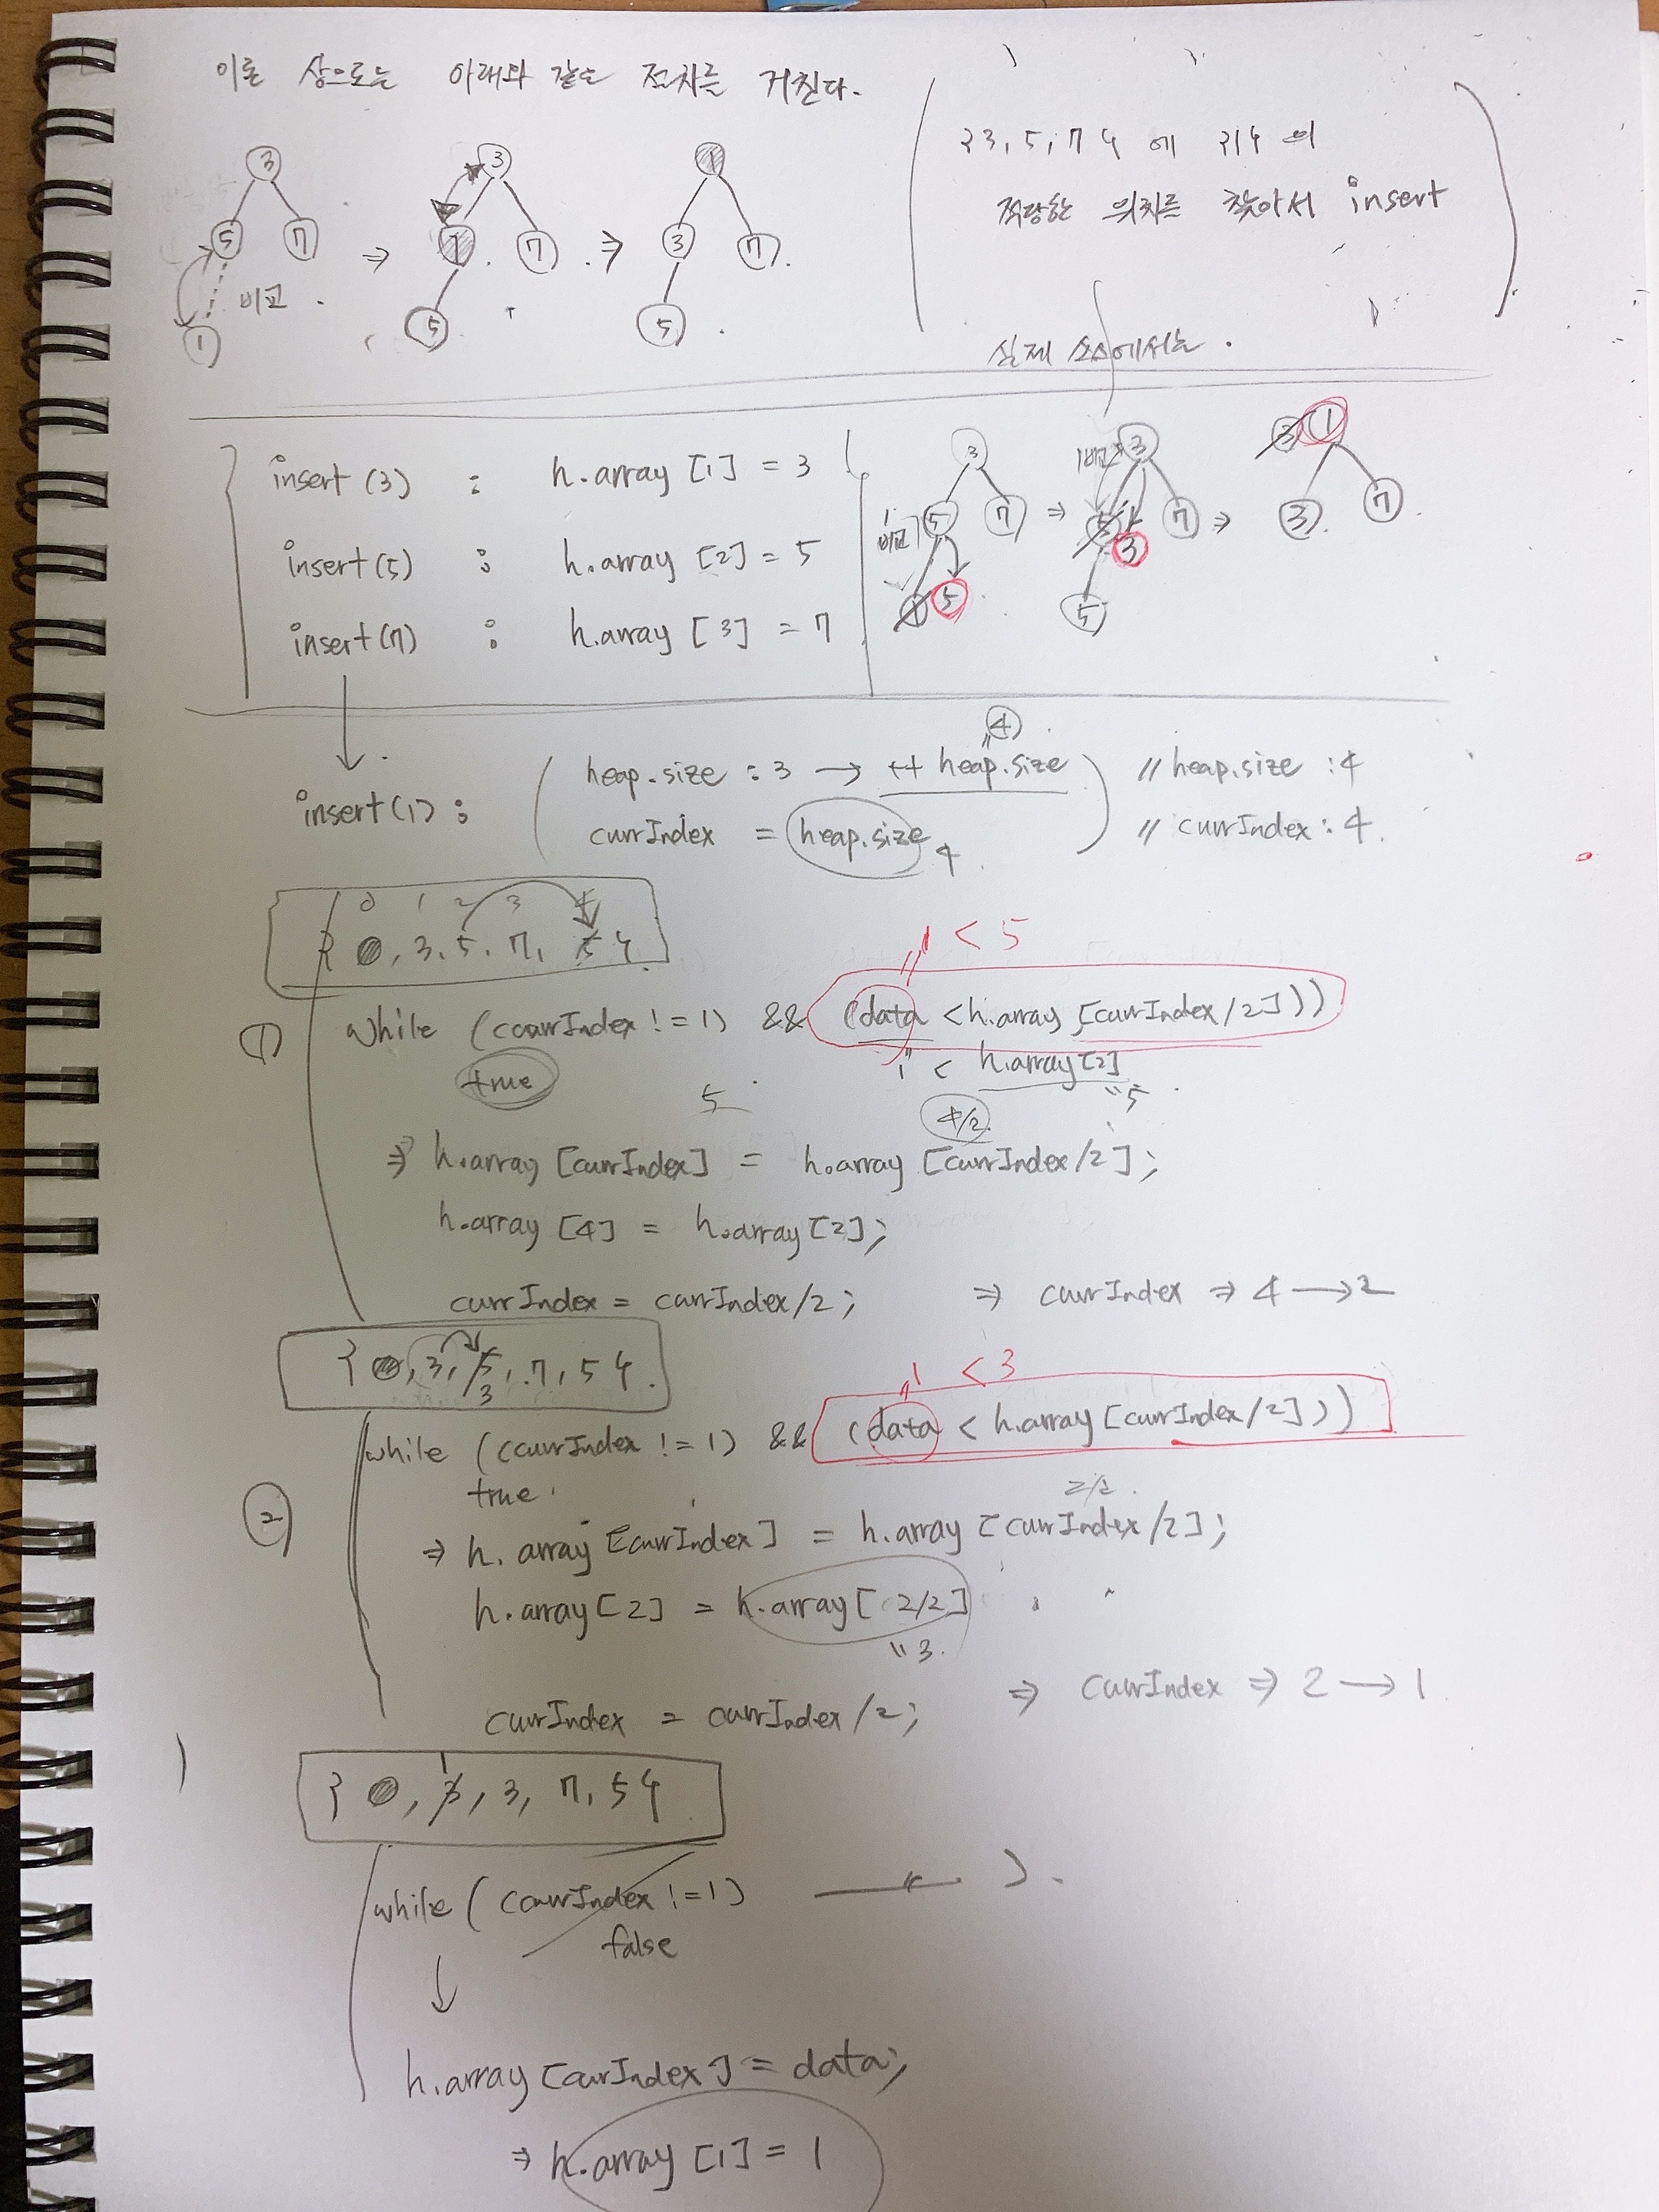 이론 상으로는 아래와 같은 절차를 거친다.
{3, 5, 7} 에 {1}의
적당한 위치를 찾아서 insert
3 3 1
5 7 ⇒ 1 7 ⇒ 3 7
비교
1 5 5
실제 소스에서는
insert(3) : h.array [1] = 3
insert(5) : h.array [2] = 5
insert(7) : h.array [3] = 7
3 비교 3 3 1
비교 5 7 ⇒ 5 7 ⇒ 3 7
3
1 5 5
4
insert(1) : ( heap.size : 3 → ++ heap.size ) // heap.size : 4
currIndex = heap.size 4 // currIndex : 4
0 1 2 3 4
{ 0, 3, 5, 7, 5 }
1 < 5
① while (currIndex != 1) && (data < h.array [currIndex/2]))
true 1 < h.array[2]
5 "5
4/2
⇒ h.array [currIndex] = h.array [currIndex/2];
h.array [4] = h.array[2];
currIndex = currIndex/2; ⇒ currIndex ⇒ 4 → 2
{ 0, 3, 5, 7, 5 }
3
1 < 3
② while (currIndex != 1) && (data < h.array[currIndex/2]))
true
2/2
⇒ h.array [currIndex] = h.array [currIndex/2];
h.array[2] = h.array[2/2]
"3
currIndex = currIndex/2; ⇒ currIndex ⇒ 2 → 1
1
{ 0, 3, 3, 7, 5 }
while ( currIndex != 1) — " — ).
false
↓
h.array[currIndex] = data;
⇒ h.array [1] = 1